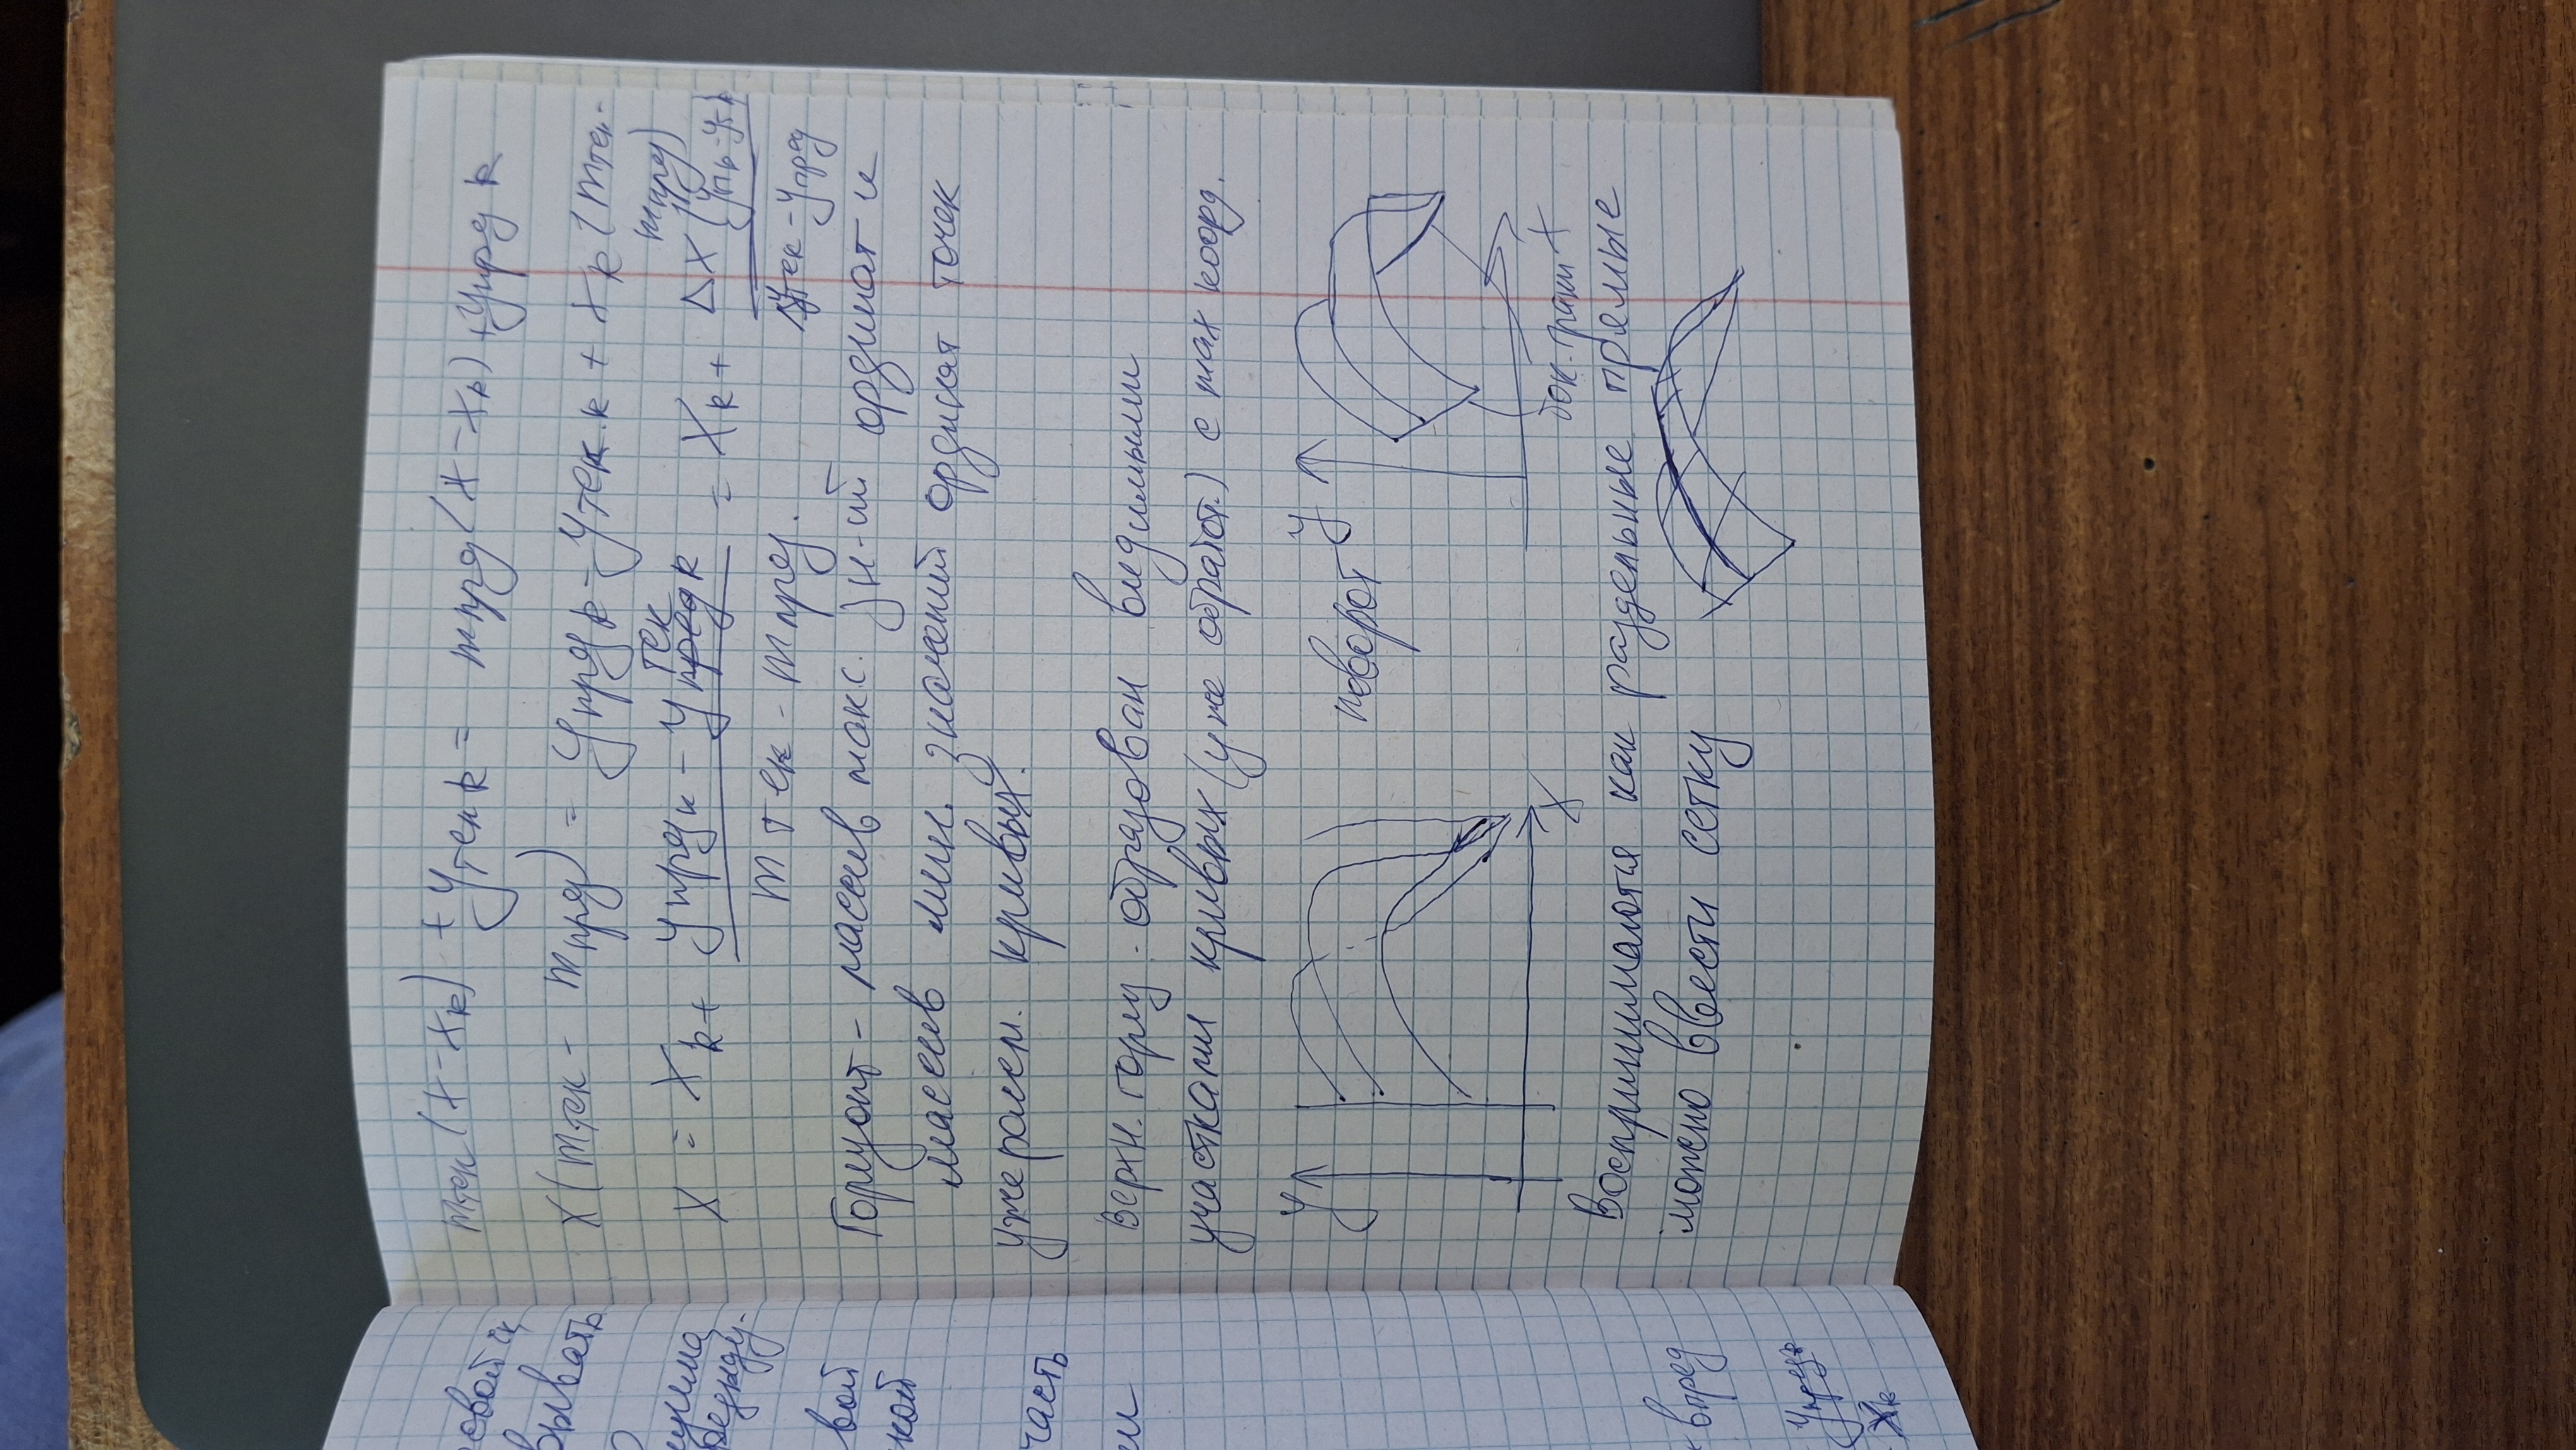 овой
вывать
вой
кой
часть
ми
впред
yпредк
Xк
mтек(x-xk) + yтек k = mпрд(x-xk) + yпрд k
x(mтек - mпрд) = yпрд k - yтек.k + xk(mтек-
mпрд)
x = xk + (yпрд k - yтек k) / (mтек - mпрд.) = xk + Δx(yпк-yтк) / (yтек-yпред)
Горизонт - массив макс. зн-ий ординат и
массив мин. значений ординат точек
уже кривых.
Верхн. гориз. образован видимыми
участками кривых (уже обработ.) с max коорд.
y
x
поворот
y
бок. грани x
Воспринимаются как раздельные прямые
можно ввести сетку